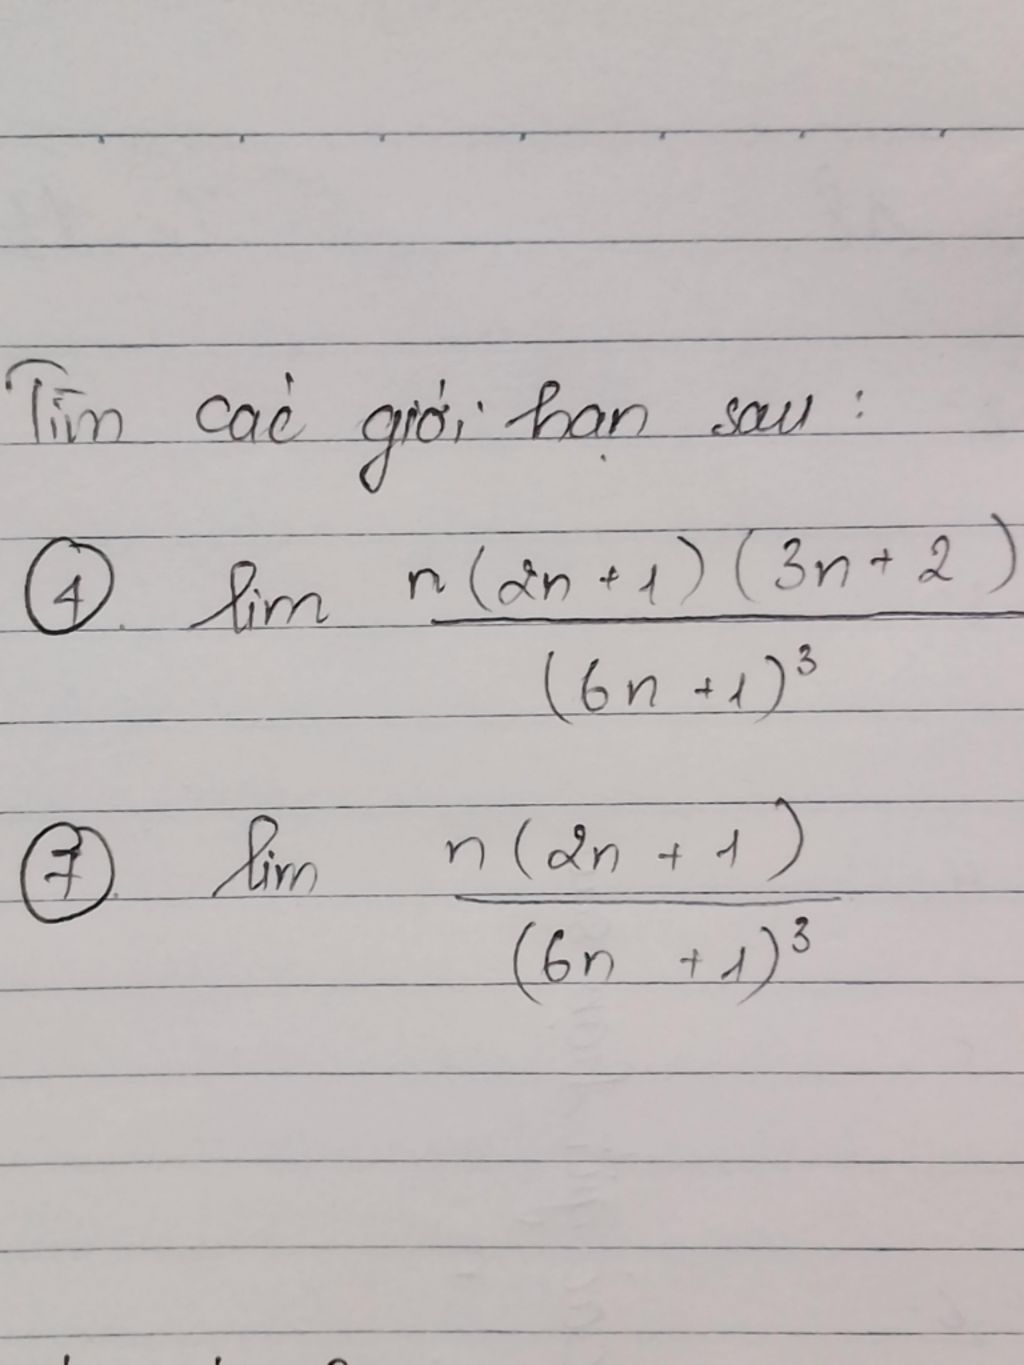 Tìm các giới hạn sau:
④. lim n(2n+1)(3n+2)
(6n+1)³
⑦. lim n(2n+1)
(6n+1)³